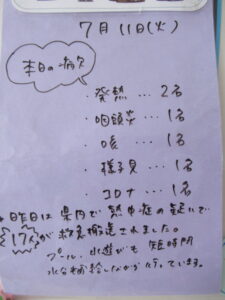 7月11日(火)
本日の病欠
・発熱…2名
・咽頭炎…1名
・咳…1名
・様子見…1名
・コロナ…1名
昨日は県内で熱中症の疑いで
17人が救急搬送されました。
プール・水遊びも短時間
水分補給しながら行っています。